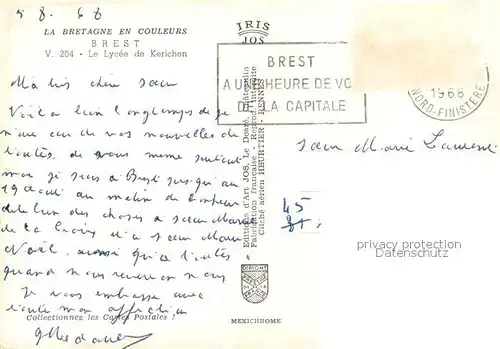 5 8. 68
LA BRETAGNE EN COULEURS
BREST
V. 204 - Le Lycée de Kerichen
IRIS
JOS
BREST
A UNE HEURE DE VOL
DE LA CAPITALE
1968
NORD-FINISTERE
Ma bien chère sœur
Voilà bien longtemps que je
n'ai eu de vos nouvelles de
toutes, de vous même surtout
moi je suis à Brest jusqu'au
19 août au matin
bien des choses à sœur Marie
de la Croix et à sœur Marie
Noël, aussi qu'à toutes
quand nous reverrons nous
Je vous embrasse avec
toute mon affection
Collectionnez les Cartes Postales !
Sœur Marie Laurent
45
Editions d'Art JOS, Le Doaré, Châteaulin
Fabrication française - Reproduction interdite
Cliché aérien HEURTIER - RENNES
DIPLOME
MEXICHROME
privacy protection
Datenschutz